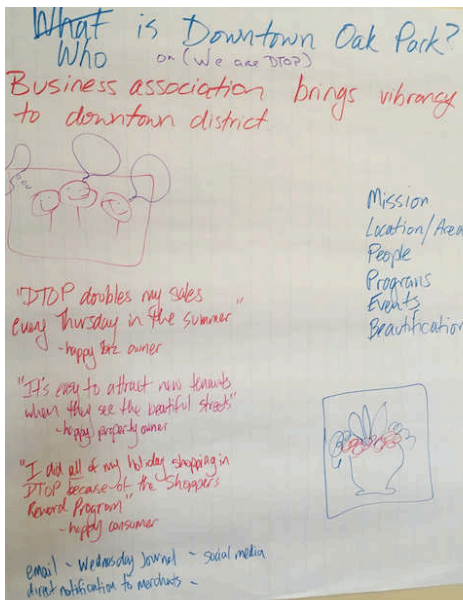 What is Downtown Oak Park?
Who or (We are DTOP)
Business association brings vibrancy
to downtown district
Mission
Location/Area
People
Programs
Events
Beautification
"DTOP doubles my sales
every Thursday in the summer"
-happy biz owner
"It's easy to attract new tenants
when they see the beautiful streets"
-happy property owner
"I did all of my holiday shopping in
DTOP because of the Shoppers
Reward Program"
-happy consumer
email - Wednesday Journal - social media
direct notification to merchants -